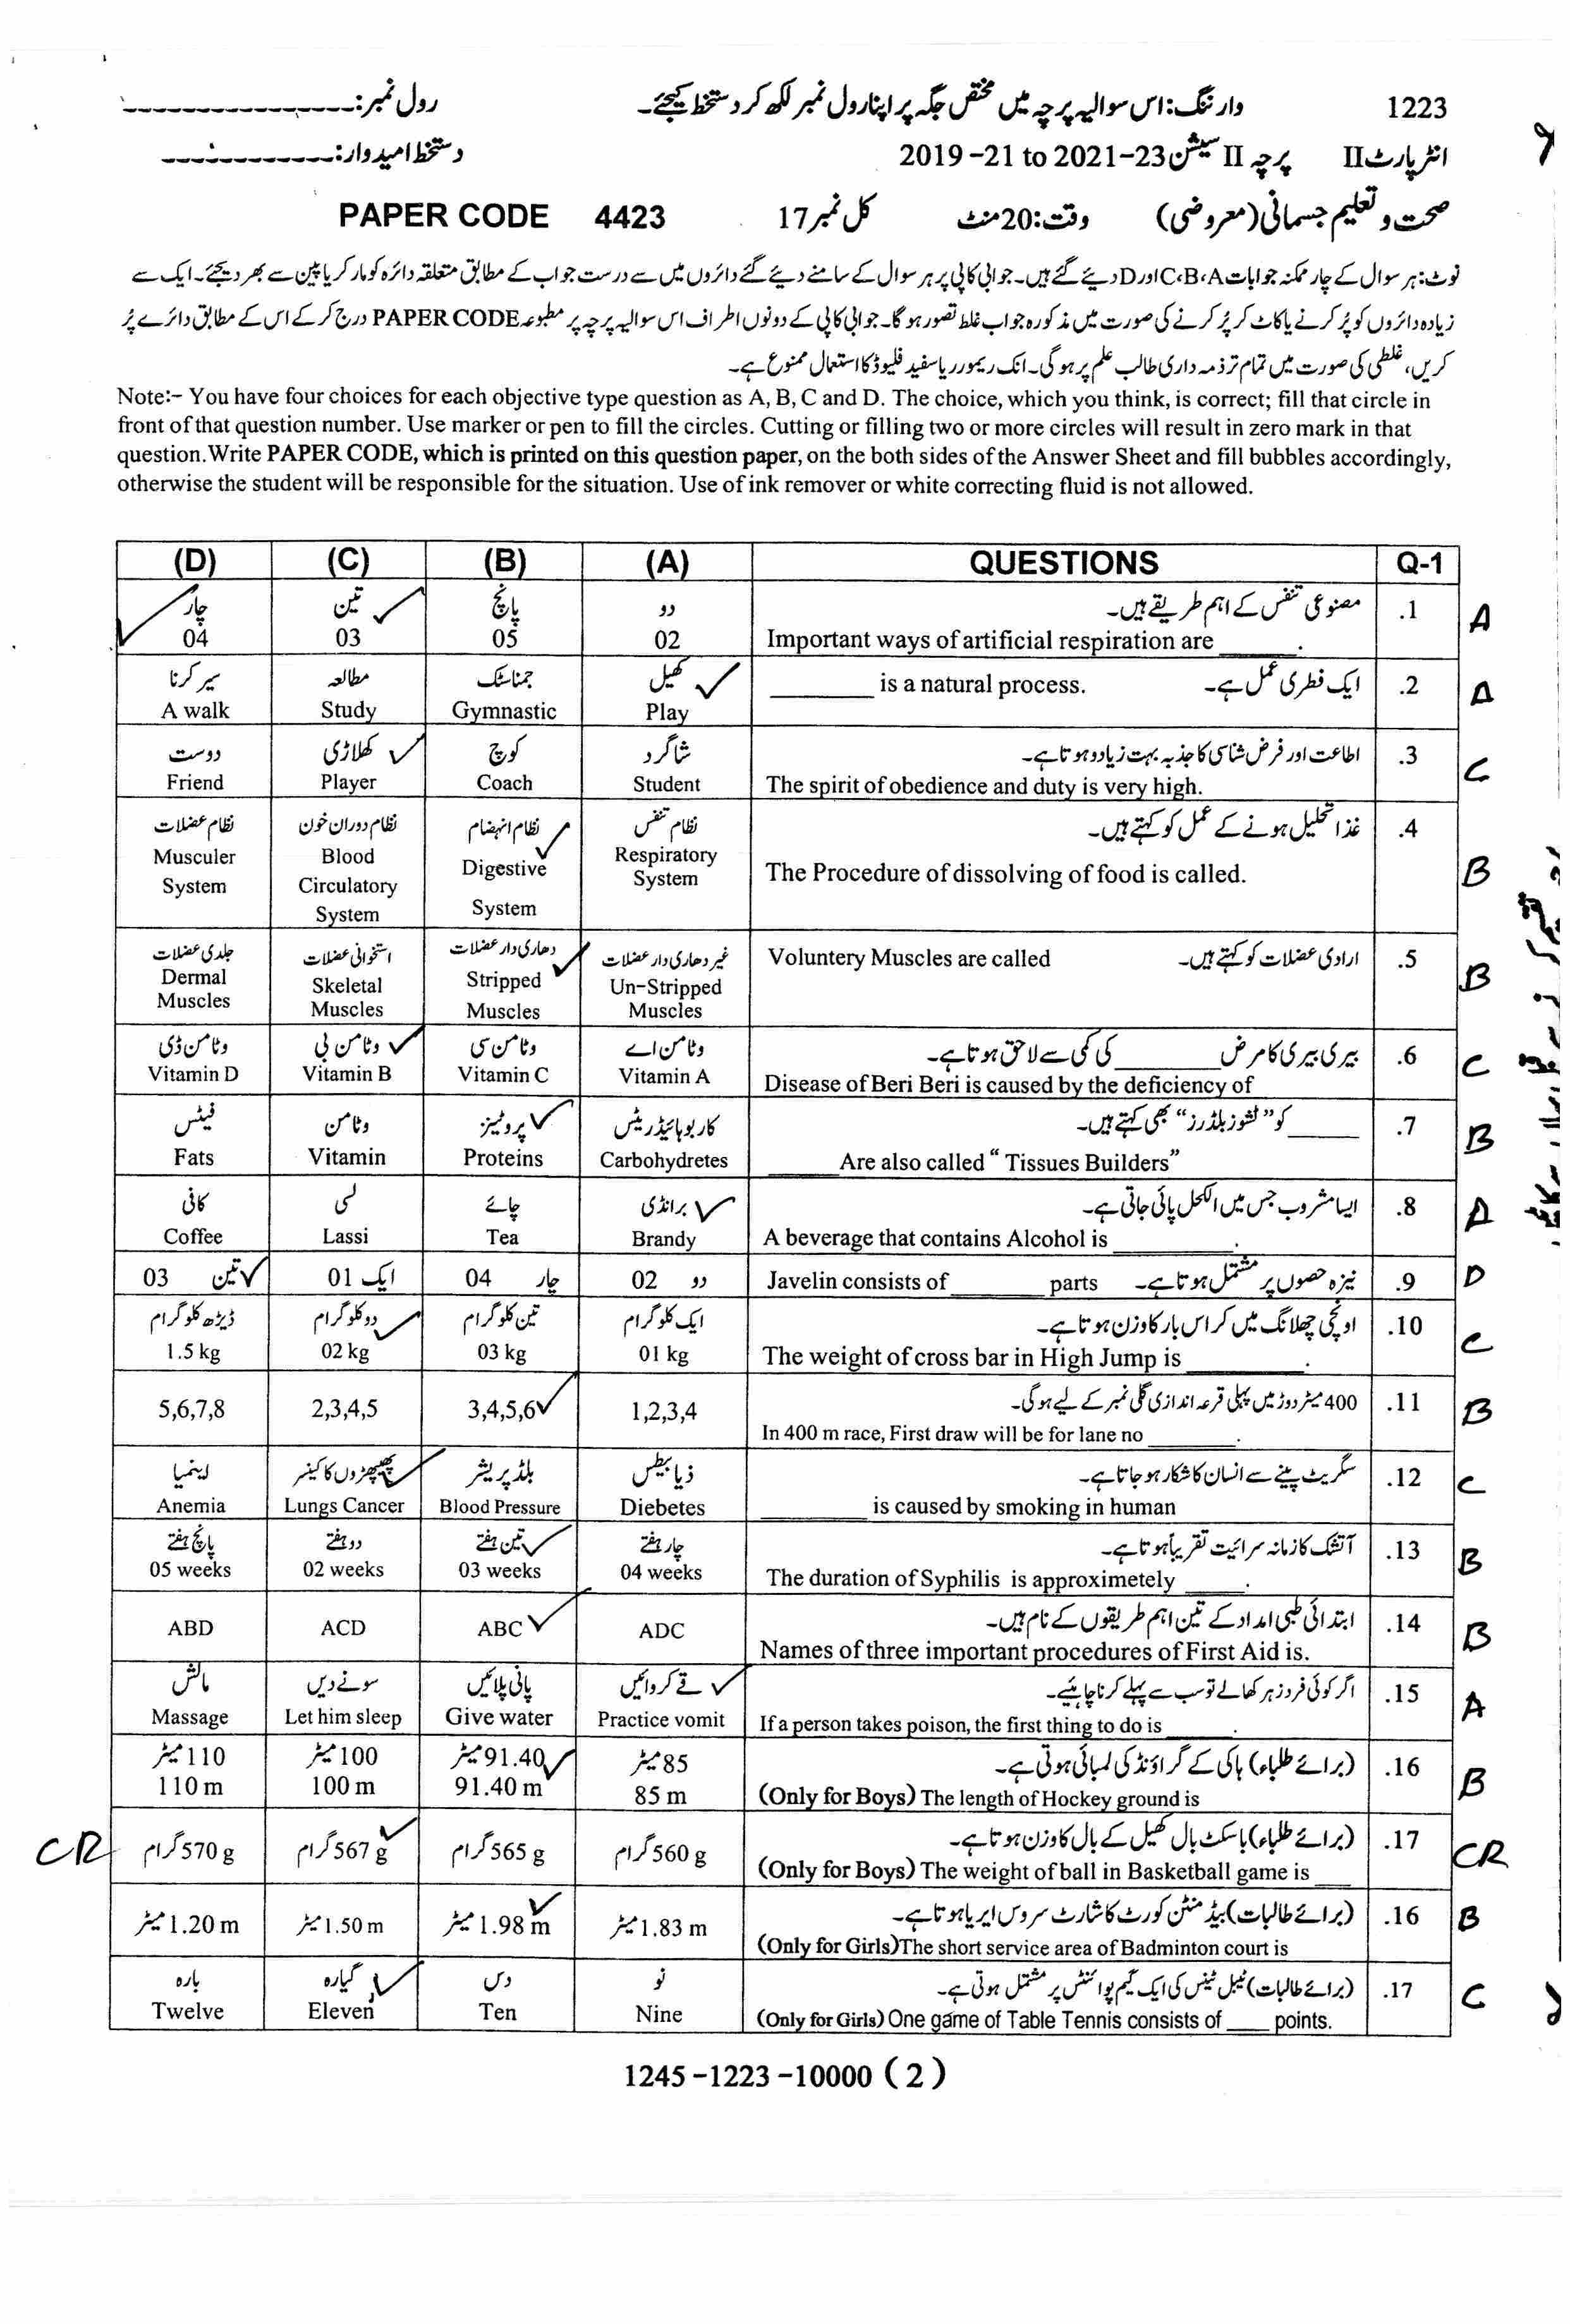 1223 وارننگ: اس سوالیہ پرچہ میں مختص جگہ پر اپنا رول نمبر لکھ کر دستخط کیجئے۔ رول نمبر:
انٹر پارٹ II پرچہ II سیشن 2019-21 to 2021-23 دستخط امیدوار:
صحت و تعلیم جسمانی (معروضی) وقت: 20 منٹ کل نمبر 17 PAPER CODE 4423
نوٹ: ہر سوال کے چار ممکنہ جوابات A،B،C اور D دیئے گئے ہیں۔ جوابی کاپی پر ہر سوال کے سامنے دیئے گئے دائروں میں سے درست جواب کے مطابق متعلقہ دائرہ کو مارکر یا پین سے بھر دیجئے۔ ایک سے
زیادہ دائروں کو پُر کرنے یا کاٹ کر پُر کرنے کی صورت میں مذکورہ جواب غلط تصور ہو گا۔ جوابی کاپی کے دونوں اطراف اس سوالیہ پرچہ پر مطبوعہ PAPER CODE درج کر کے اس کے مطابق دائرے پُر
کریں، غلطی کی صورت میں تمام تر ذمہ داری طالب علم پر ہو گی۔ انک ریمور ریا سفید فلیوڈ کا استعمال ممنوع ہے۔
Note:- You have four choices for each objective type question as A, B, C and D. The choice, which you think, is correct; fill that circle in
front of that question number. Use marker or pen to fill the circles. Cutting or filling two or more circles will result in zero mark in that
question. Write PAPER CODE, which is printed on this question paper, on the both sides of the Answer Sheet and fill bubbles accordingly,
otherwise the student will be responsible for the situation. Use of ink remover or white correcting fluid is not allowed.
(D) (C) (B) (A) QUESTIONS Q-1
چار تین پانچ دو مصنوعی تنفس کے اہم طریقے ہیں۔ .1 A
04 03 05 02 Important ways of artificial respiration are ______.
سیر کرنا مطالعہ جمناسٹک کھیل ایک فطری عمل ہے۔ .2 A
A walk Study Gymnastic Play ________ is a natural process.
دوست کھلاڑی کوچ شاگرد اطاعت اور فرض شناسی کا جذبہ بہت زیادہ ہوتا ہے۔ .3 C
Friend Player Coach Student The spirit of obedience and duty is very high.
نظام عضلات نظام دوران خون نظام انہضام نظام تنفس غذا تحلیل ہونے کے عمل کو کہتے ہیں۔ .4 B
Musculer System Blood Circulatory System Digestive System Respiratory System The Procedure of dissolving of food is called.
جلدی عضلات استخوانی عضلات دھاری دار عضلات غیر دھاری دار عضلات ارادی عضلات کو کہتے ہیں۔ .5 B
Dermal Muscles Skeletal Muscles Stripped Muscles Un-Stripped Muscles Voluntery Muscles are called
وٹامن ڈی وٹامن بی وٹامن سی وٹامن اے بیری بیری کا مرض ________ کی کمی سے لاحق ہوتا ہے۔ .6 C
Vitamin D Vitamin B Vitamin C Vitamin A Disease of Beri Beri is caused by the deficiency of
فیٹس وٹامن پروٹینز کاربوہائیڈریٹس ______ کو "ٹشوز بلڈرز" بھی کہتے ہیں۔ .7 B
Fats Vitamin Proteins Carbohydretes ______ Are also called “ Tissues Builders”
کافی لسی چائے برانڈی ایسا مشروب جس میں الکحل پائی جاتی ہے۔ .8 A
Coffee Lassi Tea Brandy A beverage that contains Alcohol is ________.
03 تین 01 ایک 04 چار 02 دو Javelin consists of ________ parts نیزہ حصوں پر مشتمل ہوتا ہے۔ .9 D
ڈیڑھ کلوگرام دو کلوگرام تین کلوگرام ایک کلوگرام اونچی چھلانگ میں کراس بار کا وزن ہوتا ہے۔ .10 C
1.5 kg 02 kg 03 kg 01 kg The weight of cross bar in High Jump is ________.
5,6,7,8 2,3,4,5 3,4,5,6 1,2,3,4 400 میٹر دوڑ میں پہلی قرعہ اندازی گلی نمبر کے لیے ہو گی۔ .11 B
In 400 m race, First draw will be for lane no ________.
اینمیا پھیپھڑوں کا کینسر بلڈ پریشر ذیابیطس سگریٹ پینے سے انسان کا شکار ہو جاتا ہے۔ .12 C
Anemia Lungs Cancer Blood Pressure Diebetes ________ is caused by smoking in human
پانچ ہفتے دو ہفتے تین ہفتے چار ہفتے آتشک کا زمانہ سرائیت تقریباً ہوتا ہے۔ .13 B
05 weeks 02 weeks 03 weeks 04 weeks The duration of Syphilis is approximetely _____.
ABD ACD ABC ADC ابتدائی طبی امداد کے تین اہم طریقوں کے نام ہیں۔ .14 B
Names of three important procedures of First Aid is.
مالش سونے دیں پانی پلائیں قے کروائیں اگر کوئی فرد زہر کھا لے تو سب سے پہلے کرنا چاہیئے۔ .15 A
Massage Let him sleep Give water Practice vomit If a person takes poison, the first thing to do is _____.
110 میٹر 100 میٹر 91.40 میٹر 85 میٹر (برائے طلباء) ہاکی کے گراؤنڈ کی لمبائی ہوتی ہے۔ .16 B
110 m 100 m 91.40 m 85 m (Only for Boys) The length of Hockey ground is
CR 570 g گرام 567 g گرام 565 g گرام 560 g گرام (برائے طلباء) باسکٹ بال کھیل کے بال کا وزن ہوتا ہے۔ .17 CR
(Only for Boys) The weight of ball in Basketball game is ___
1.20 m میٹر 1.50 m میٹر 1.98 m میٹر 1.83 m میٹر (برائے طالبات) بیڈمنٹن کورٹ کا شارٹ سروس ایریا ہوتا ہے۔ .16 B
(Only for Girls) The short service area of Badminton court is
بارہ گیارہ دس نو (برائے طالبات) ٹیبل ٹینس کی ایک گیم پوائنٹس پر مشتمل ہوتی ہے۔ .17 C
Twelve Eleven Ten Nine (Only for Girls) One game of Table Tennis consists of ____ points.
1245-1223-10000 (2)